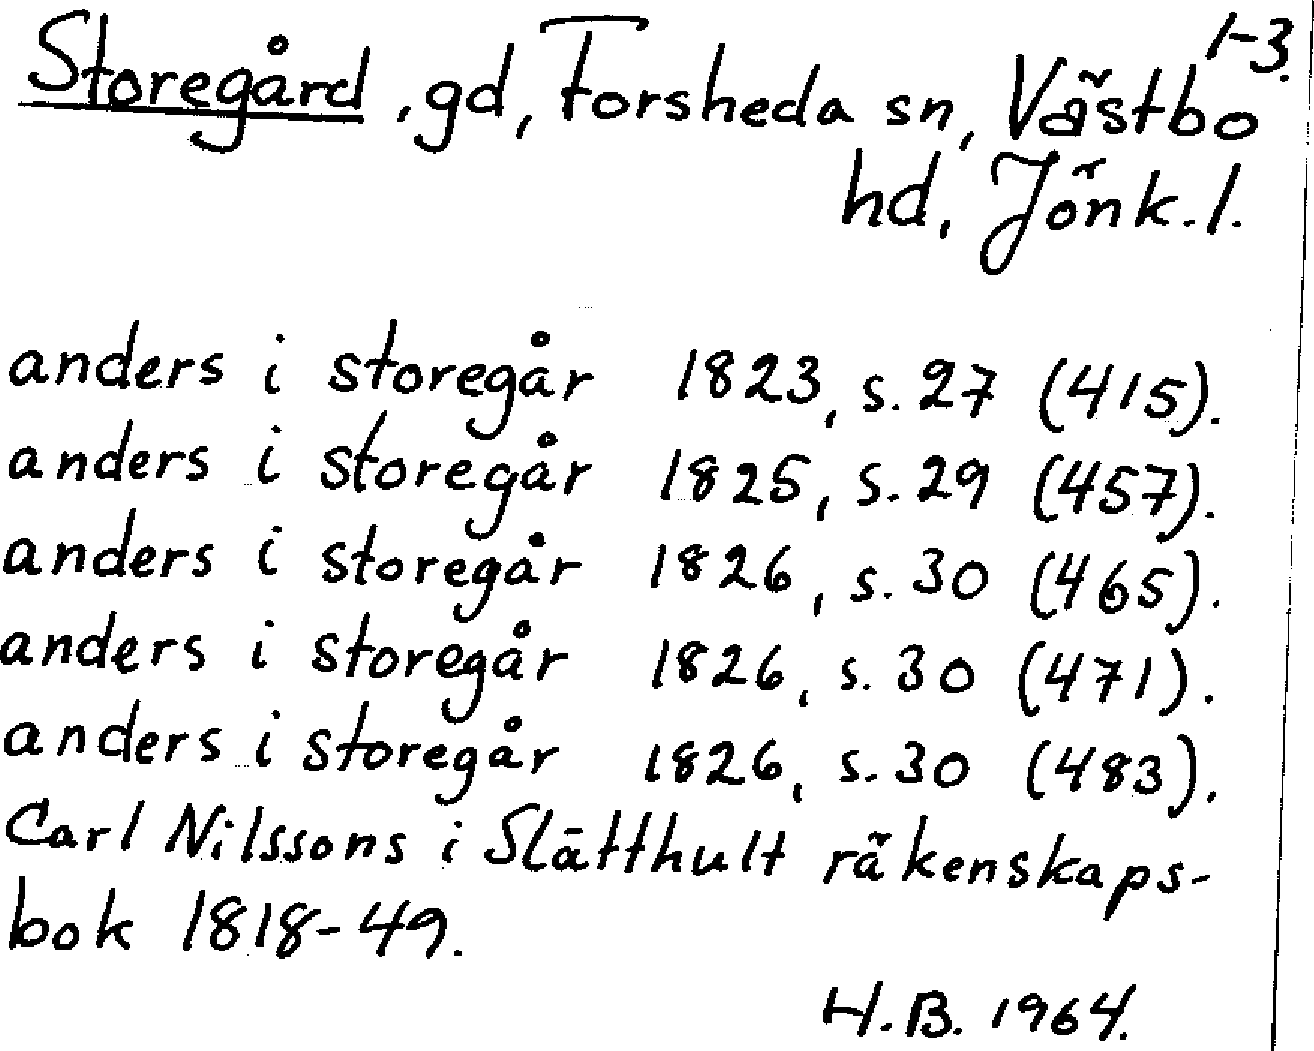 1-3.
Storegård, gd, Forsheda sn, Västbo
hd, Jönk. l.
anders i storegår 1823, s. 27 (415).
anders i storegår 1825, s. 29 (457).
anders i storegår 1826, s. 30 (465).
anders i storegår 1826, s. 30 (471).
anders i storegår 1826, s. 30 (483).
Carl Nilssons i Slätthult räkenskaps-
bok 1818-49.
H.B. 1964.